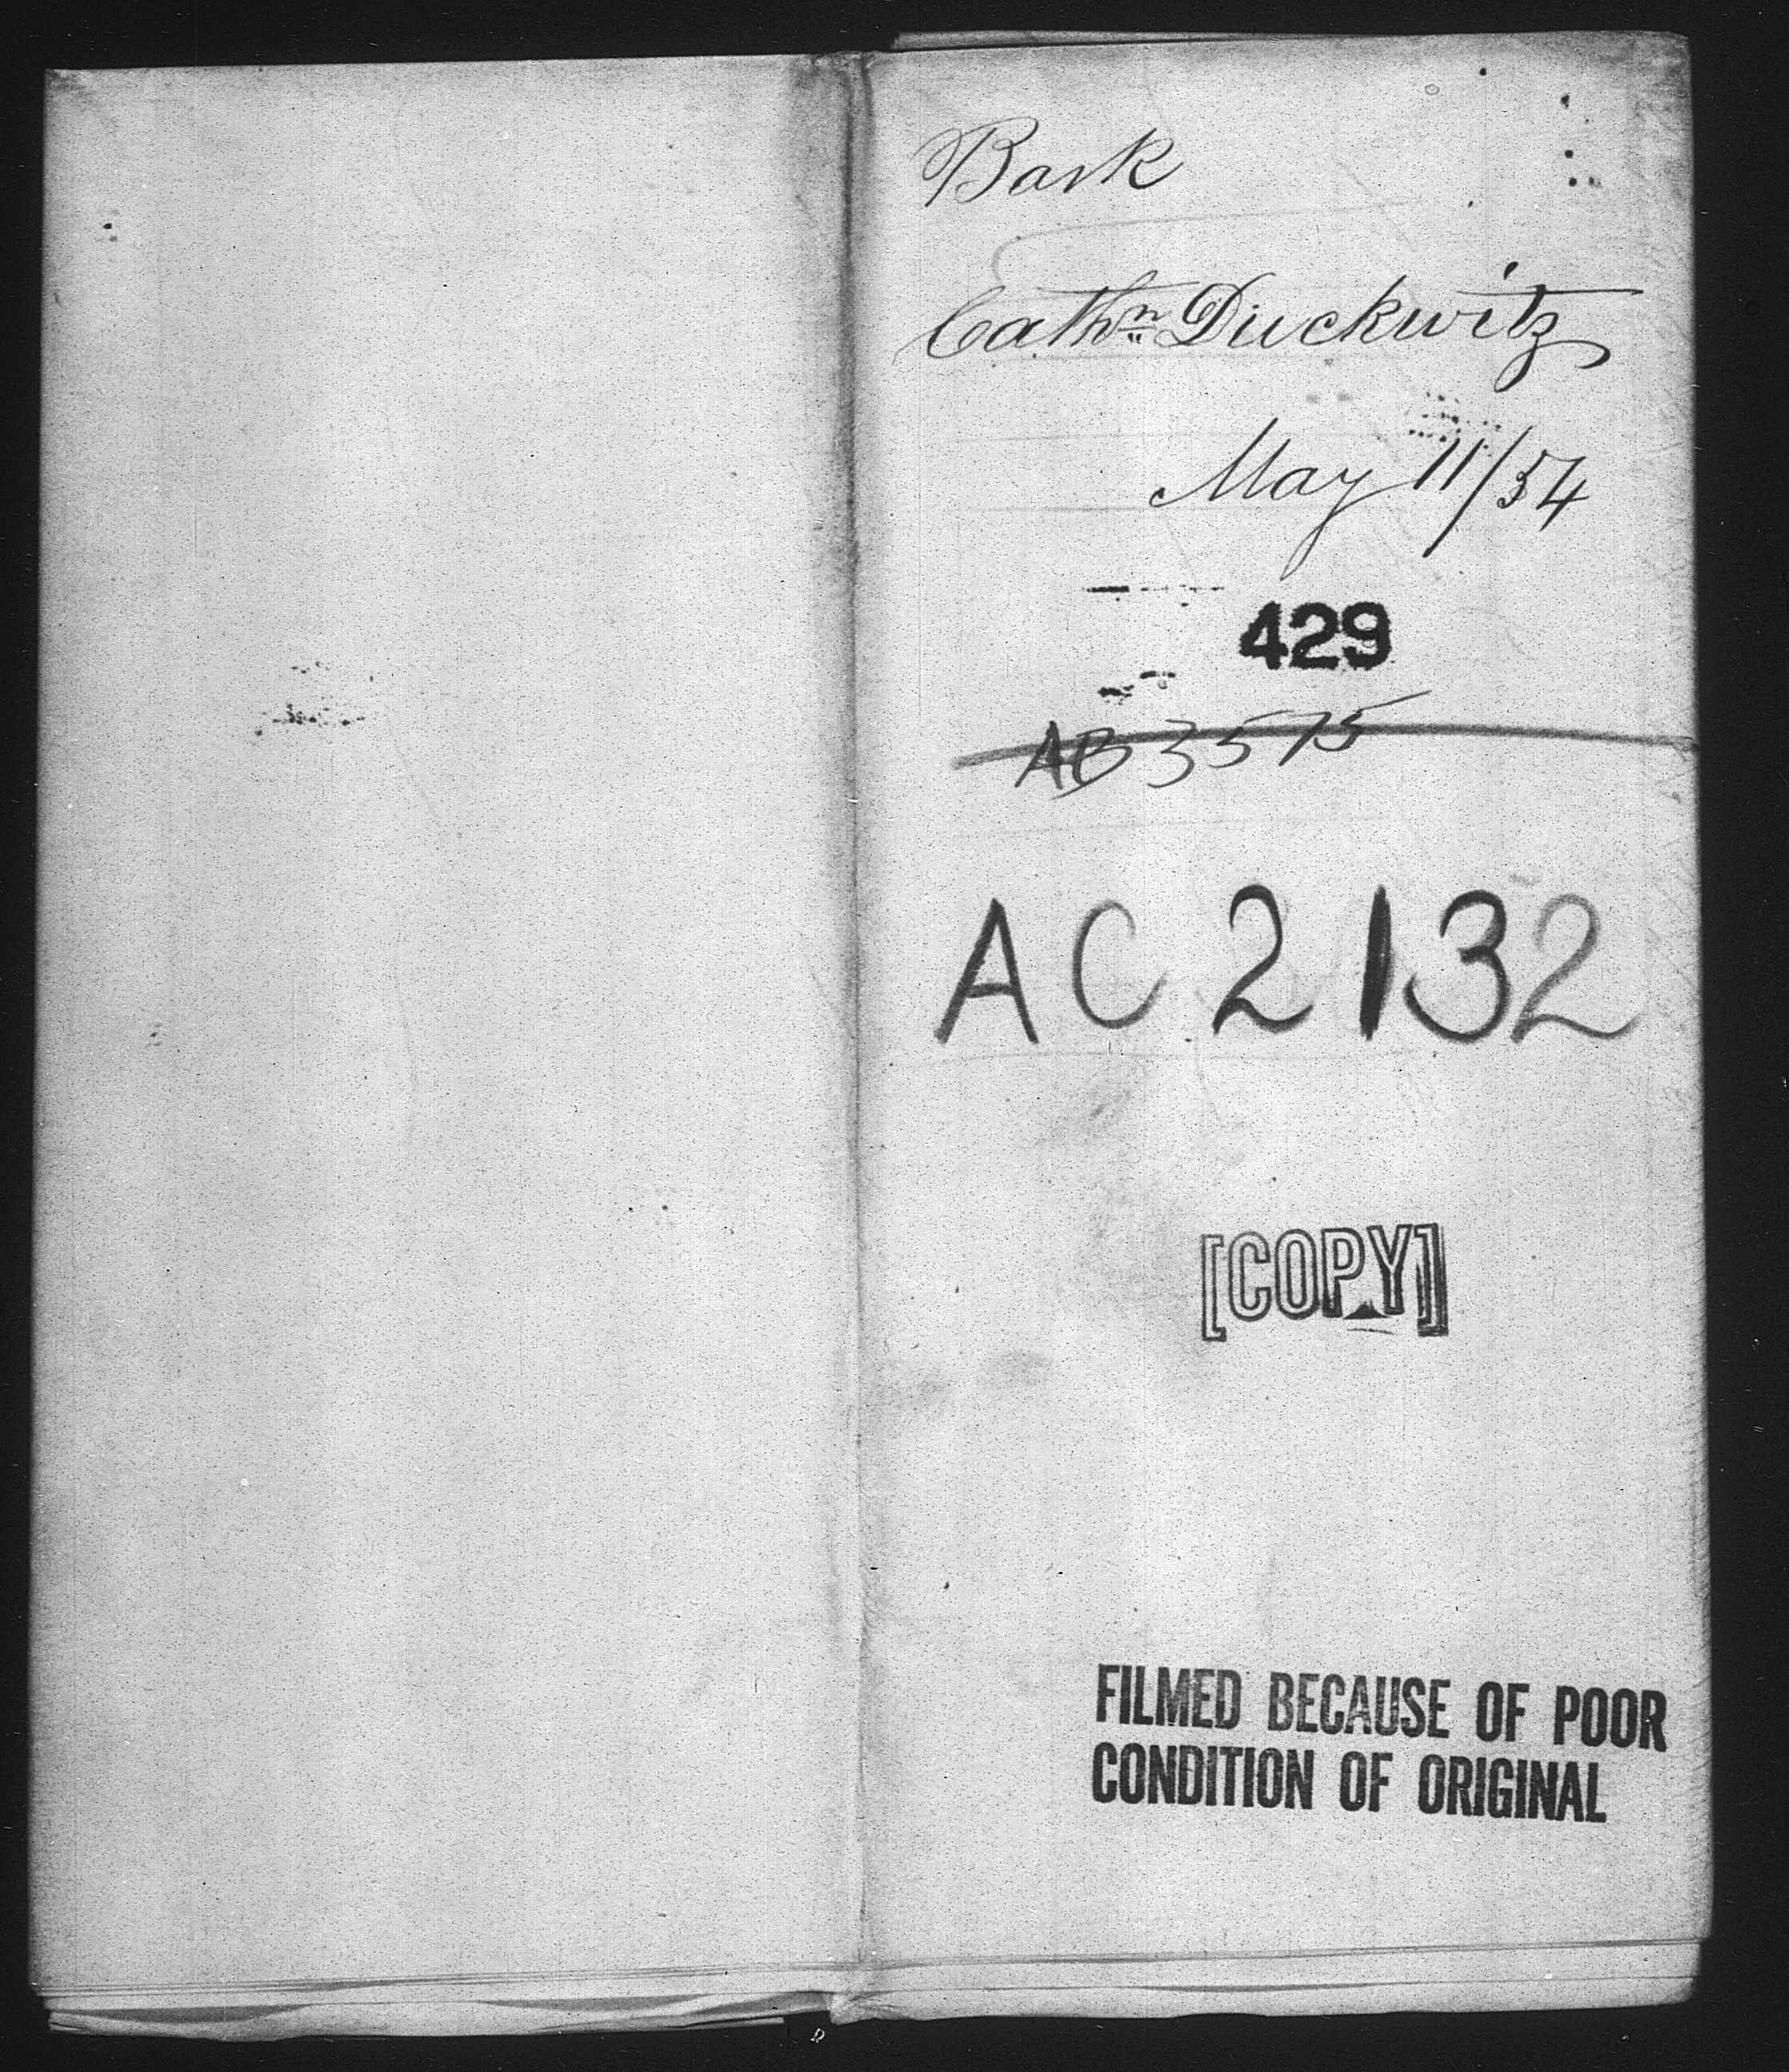 Bark
Cathn Duckwitz
May 11/54
429
AB 3575
AC 2132
[COPY]
FILMED BECAUSE OF POOR
CONDITION OF ORIGINAL